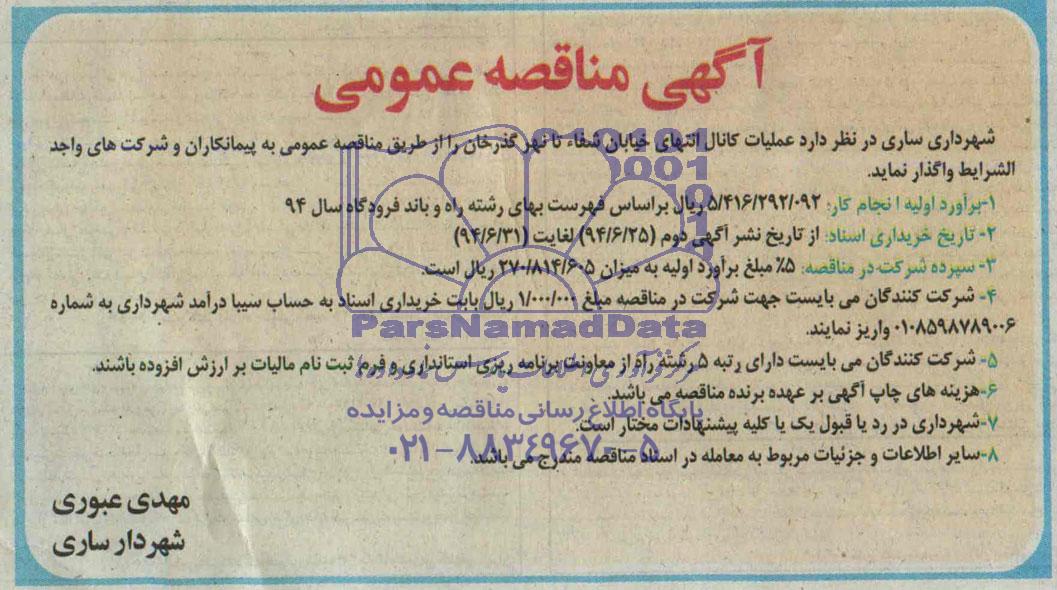 آگهی مناقصه عمومی
شهرداری ساری در نظر دارد عملیات کانال انتهای خیابان شفاء تا نهر گذرخان را از طریق مناقصه عمومی به پیمانکاران و شرکت های واجد
الشرایط واگذار نماید.
۱-برآورد اولیه ا نجام کار: ۵/۴۱۶/۲۹۲/۰۹۲ ریال براساس فهرست بهای رشته راه و باند فرودگاه سال ۹۴
۲- تاریخ خریداری اسناد: از تاریخ نشر آگهی دوم (۹۴/۶/۲۵) لغایت (۹۴/۶/۳۱)
۳- سپرده شرکت در مناقصه: ۵٪ مبلغ برآورد اولیه به میزان ۲۷۰/۸۱۴/۶۰۵ ریال است.
۴- شرکت کنندگان می بایست جهت شرکت در مناقصه مبلغ ۱/۰۰۰/۰۰۰ ریال بابت خریداری اسناد به حساب سیبا درآمد شهرداری به شماره
۰۱۰۸۵۹۸۷۸۹۰۰۶ واریز نمایند.
۵- شرکت کنندگان می بایست دارای رتبه ۵ رشته راه از معاونت برنامه ریزی استانداری و فرم ثبت نام مالیات بر ارزش افزوده باشند.
۶-هزینه های چاپ آگهی بر عهده برنده مناقصه می باشد.
۷-شهرداری در رد یا قبول یک یا کلیه پیشنهادات مختار است.
۸-سایر اطلاعات و جزئیات مربوط به معامله در اسناد مناقصه مندرج می باشد.
مهدی عبوری
شهردار ساری
ParsNamadData
پایگاه اطلاع رسانی مناقصه و مزایده
۰۲۱-۸۸۳۴۹۶۷۰-۵